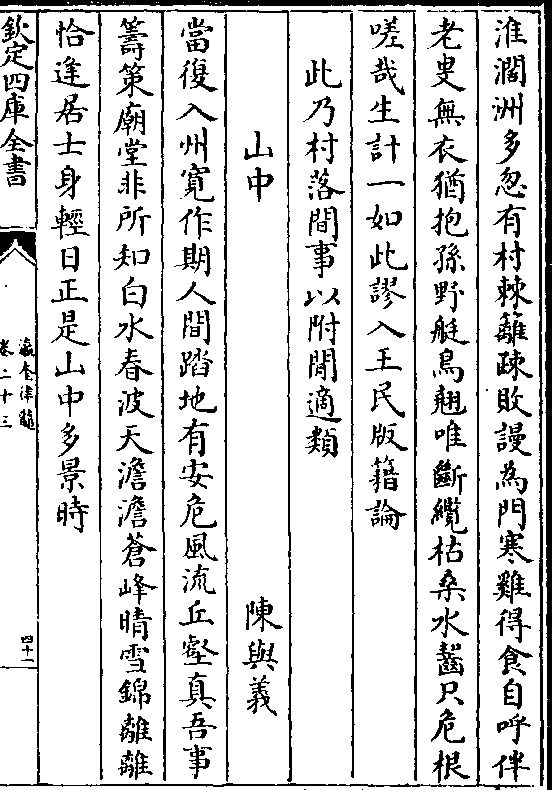 淮濶洲多忽有村棘籬疎敗謾為門寒雞得食自呼伴
老叟無衣猶抱孫野艇鳥翹唯斷纜枯桑水齧只危根
嗟哉生計一如此謬入王民版籍論
此乃村落間事以附閒適類
山中　陳與義
當復入州寛作期人間踏地有安危風流丘壑真吾事
籌策廟堂非所知白水春波天澹澹蒼峰晴雪錦離離
恰逢居士身輕日正是山中多景時
欽定四庫全書
瀛奎律髓
卷二十三
四十一